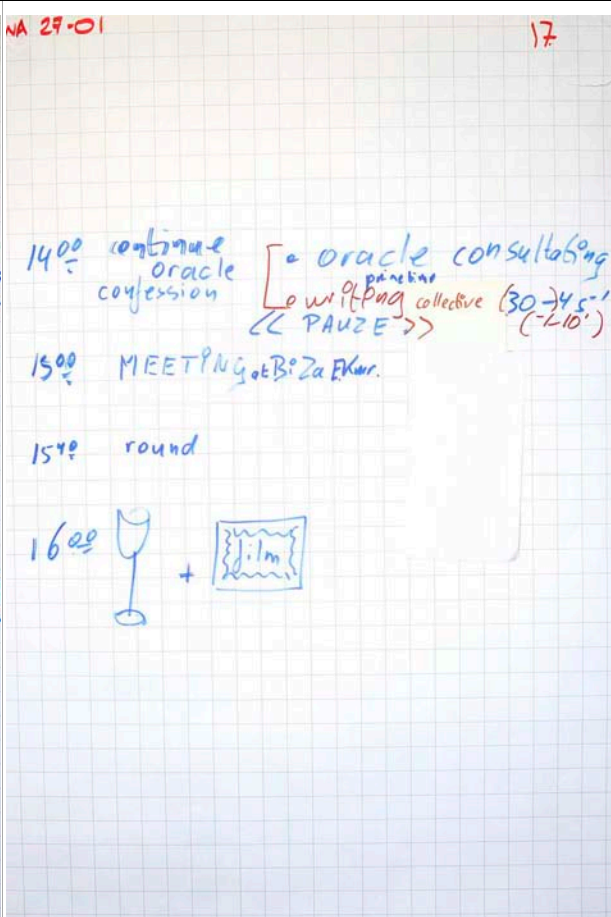 NA 27-01
17
14 00 continue
oracle
confession
• oracle consultating
• writing collective (30→45-'
(-/-10')
<< PAUZE >>
15 00 MEETING at BiZa
15 40 round
16 00 + film